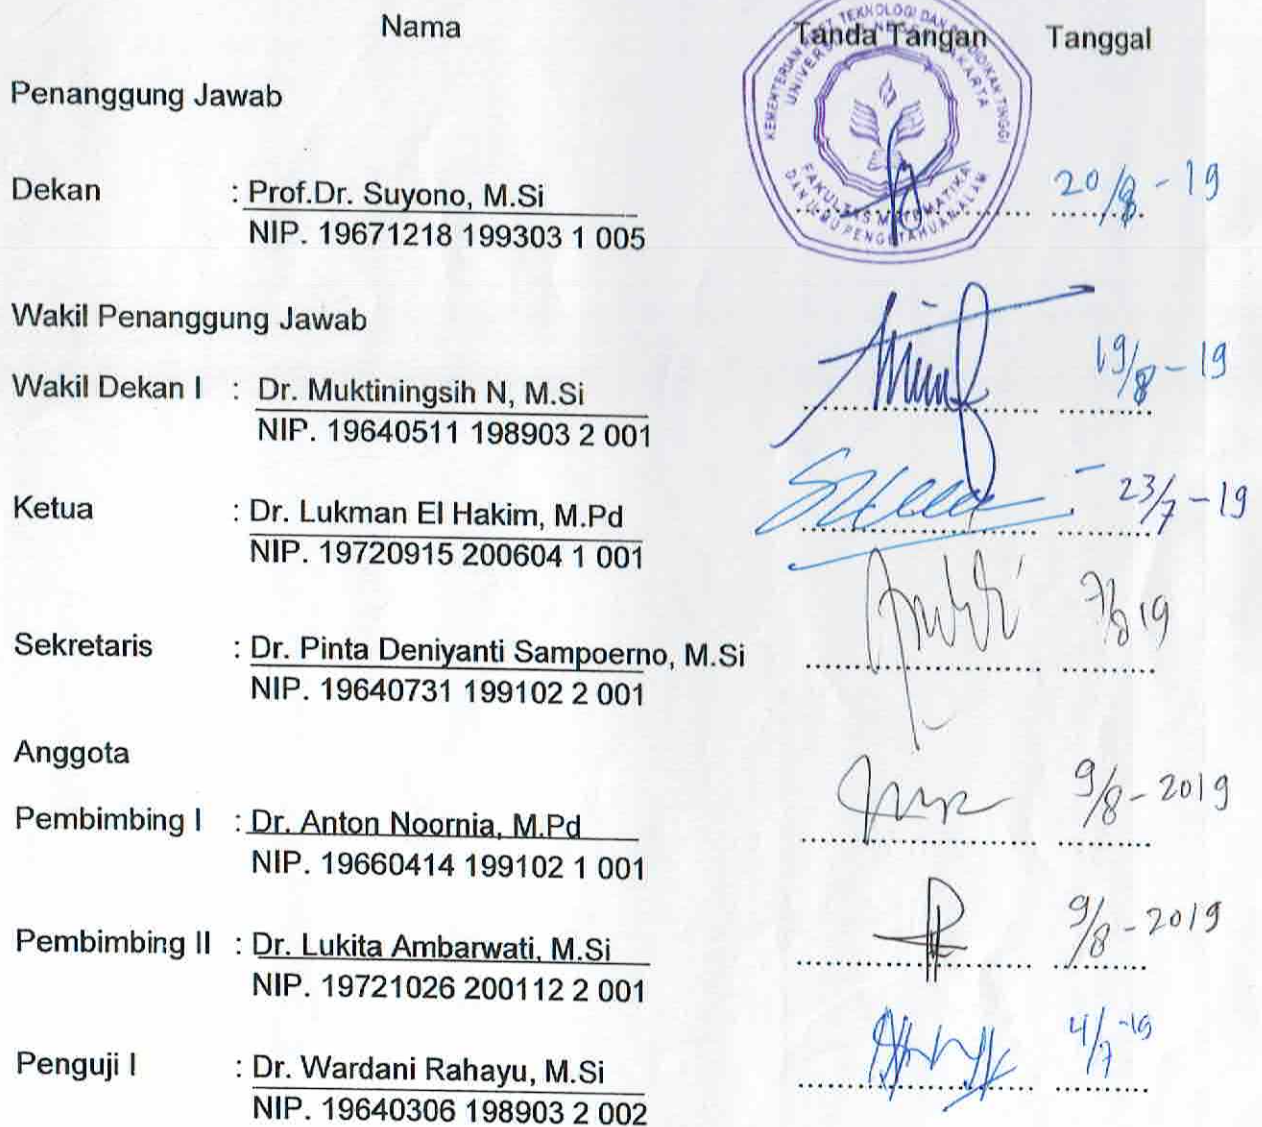 Nama Tanda Tangan Tanggal
Penanggung Jawab
Dekan : Prof.Dr. Suyono, M.Si .................... 20/8 - 19
NIP. 19671218 199303 1 005
Wakil Penanggung Jawab
Wakil Dekan I : Dr. Muktiningsih N, M.Si .................... 19/8 - 19
NIP. 19640511 198903 2 001
Ketua : Dr. Lukman El Hakim, M.Pd .................... 23/7 - 19
NIP. 19720915 200604 1 001
Sekretaris : Dr. Pinta Deniyanti Sampoerno, M.Si .................... 19
NIP. 19640731 199102 2 001
Anggota
Pembimbing I : Dr. Anton Noornia, M.Pd .................... 9/8 - 2019
NIP. 19660414 199102 1 001
Pembimbing II : Dr. Lukita Ambarwati, M.Si .................... 9/8 - 2019
NIP. 19721026 200112 2 001
Penguji I : Dr. Wardani Rahayu, M.Si .................... 4/7 -19
NIP. 19640306 198903 2 002
KEMENTERIAN RISET TEKNOLOGI DAN PENDIDIKAN TINGGI
UNIVERSITAS NEGERI JAKARTA
FAKULTAS MATEMATIKA
DAN ILMU PENGETAHUAN ALAM